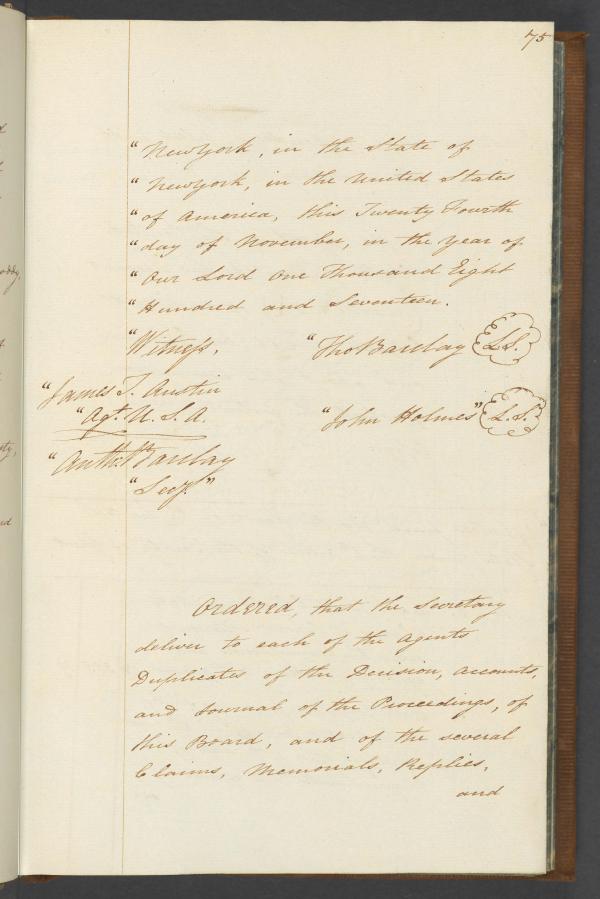 75
"New York, in the State of
"New York, in the United States
"of America, this Twenty Fourth
"day of November, in the year of
"Our Lord One Thousand Eight
"Hundred and Seventeen.
"Witness, "Tho Barclay L.S.
"James T. Austin
"Agt. U. S. A. "John Holmes" L.S.
"Anth: Barclay
"Secy."
Ordered, that the Secretary
deliver to each of the Agents
Duplicates of the Decision, Accounts,
and Journal of the Proceedings, of
this Board, and of the several
Claims, Memorials, Replies,
and